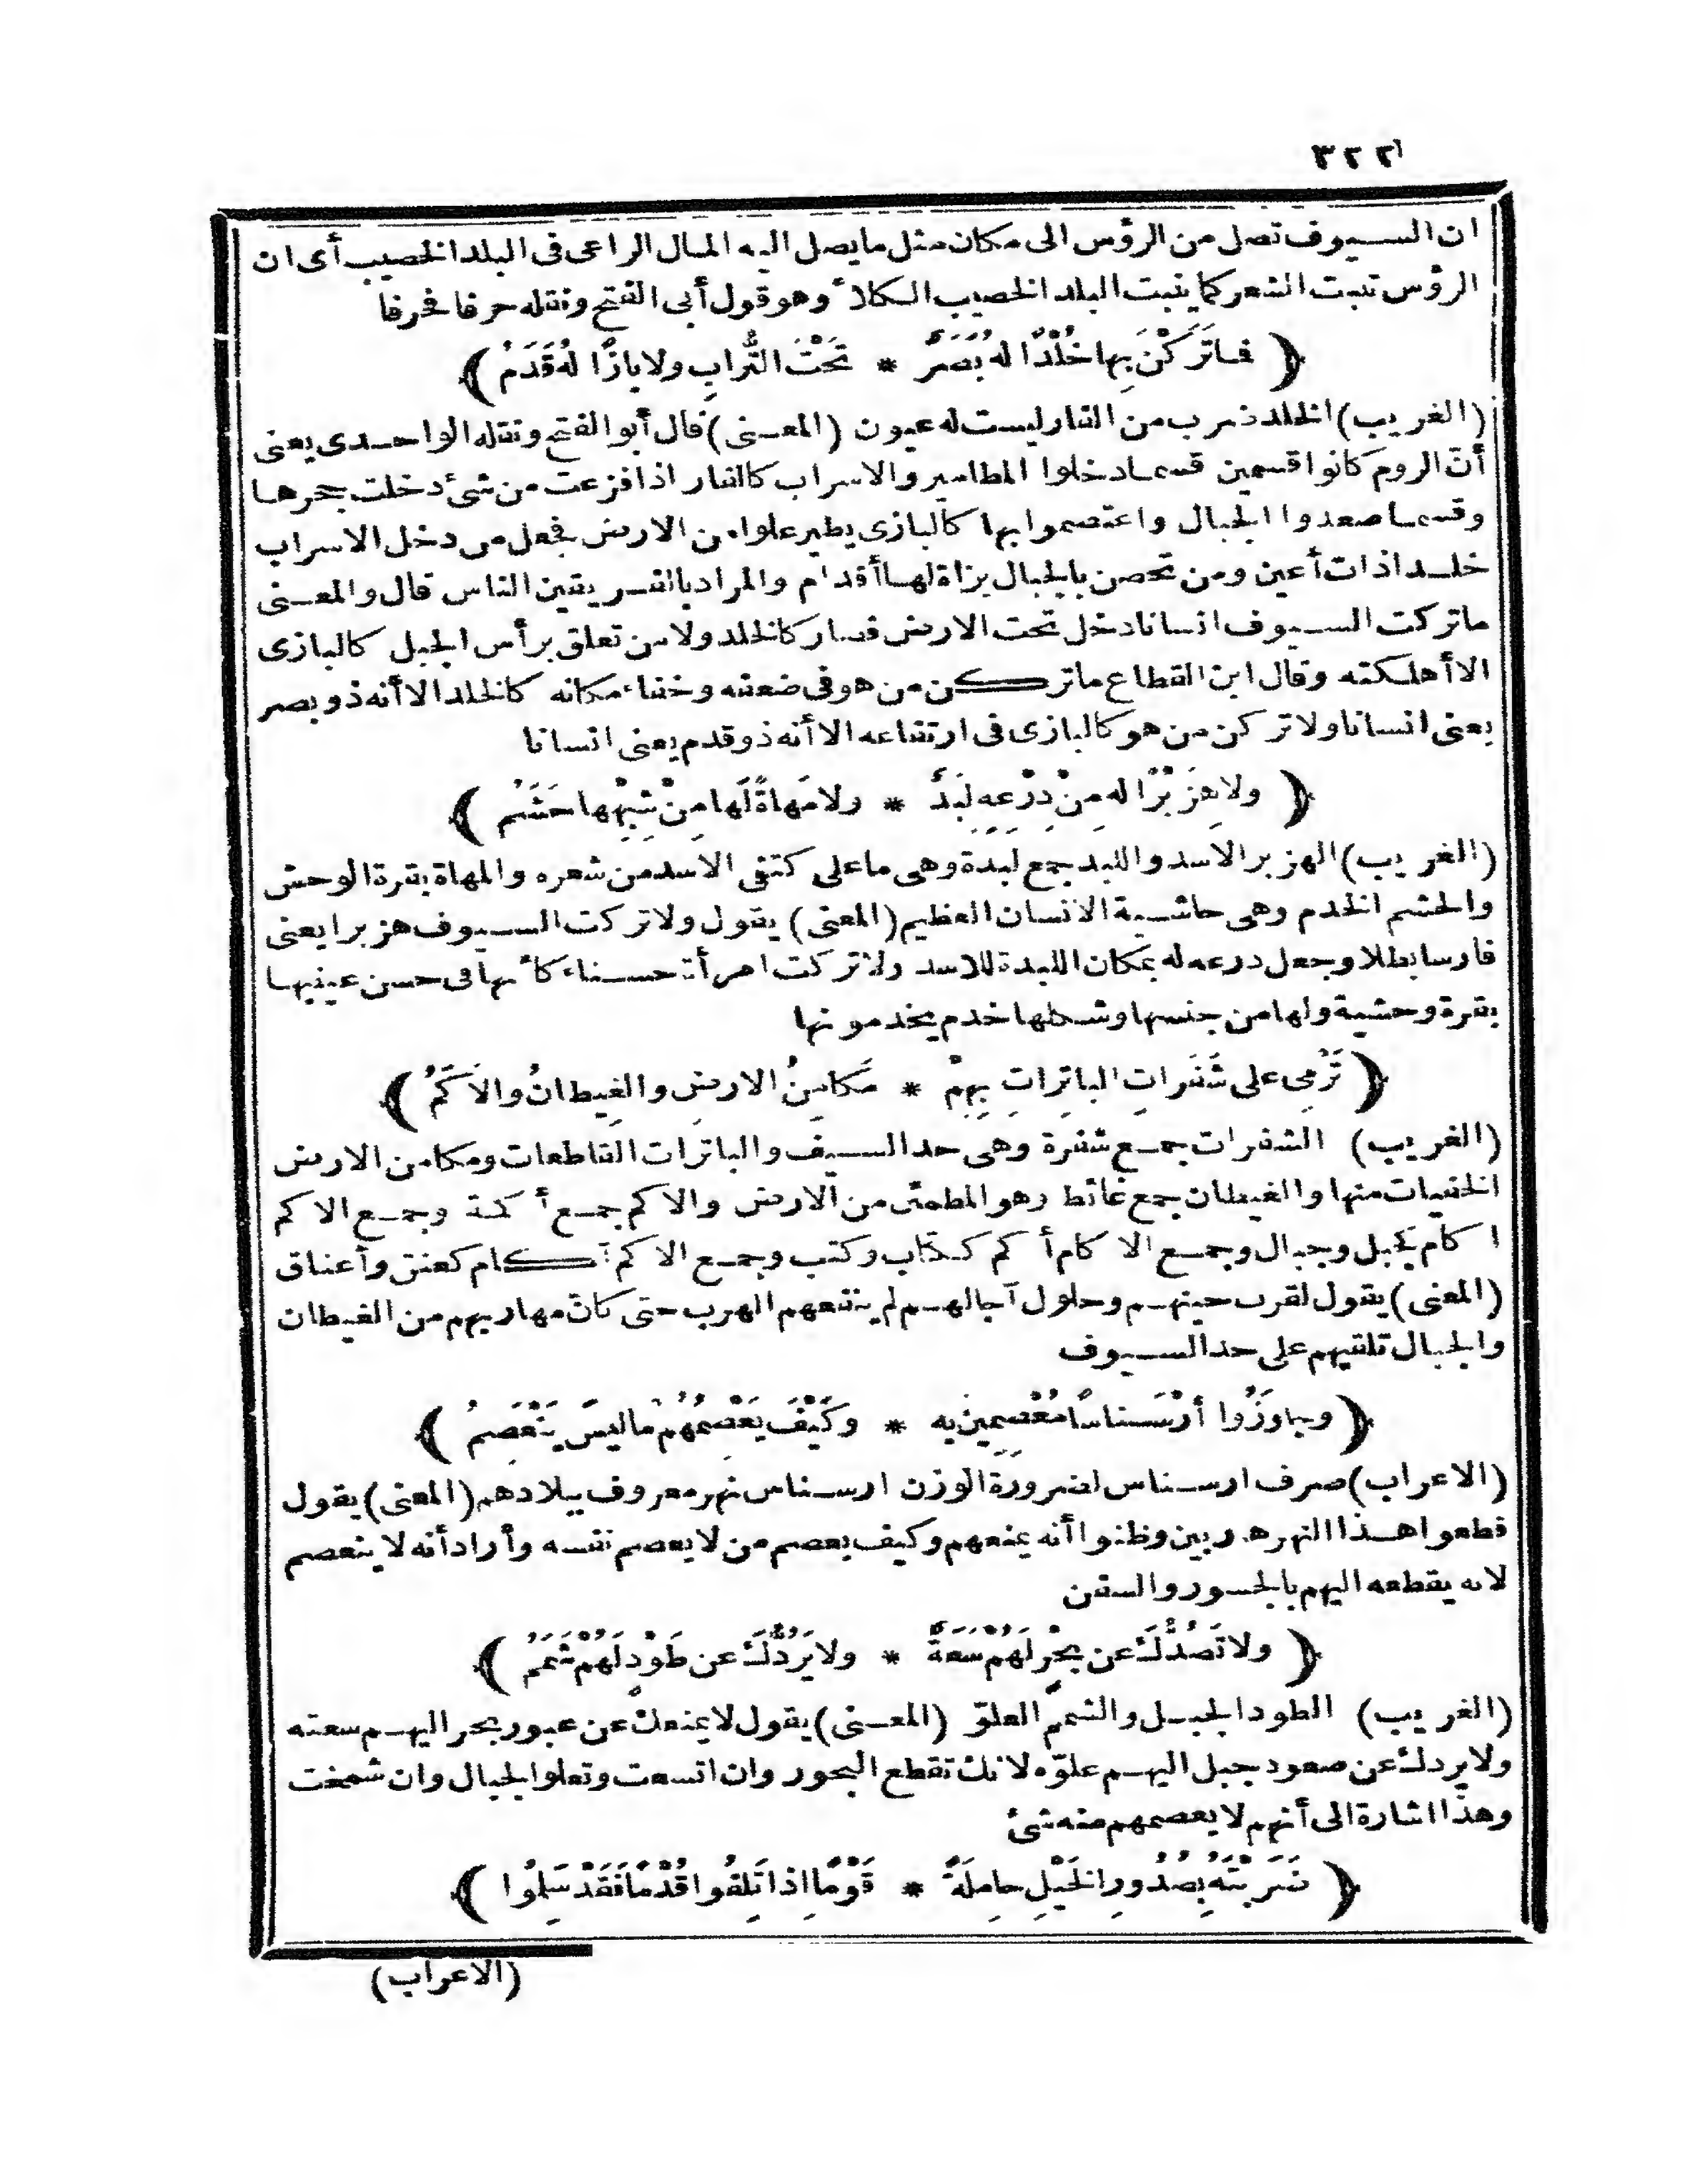 ٣٢٢
ان السيوف تصل من الرؤس الى مكان مثل ما يصل اليه المال الراعى فى البلد الخصيب أى ان
الرؤس تنبت الشعر كما ينبت البلد الخصيب الكلأ وهو قول أبى الفتح ونقله حرفا فحرفا
﴿ فَما تَرَكْنَ بِها خُلْدًا لهُ بَصَرٌ * تَحْتَ التُّرابِ ولا بازًا لهُ قَدَمُ ﴾
(الغريب) الخلد ضرب من الفار ليست له عيون (المعنى) قال أبو الفتح ونقله الواحدى يعنى
أنّ الروم كانوا قسمين قسما دخلوا المطامير والاسراب كالفار اذا فزعت من شئ دخلت جحرها
وقسما صعدوا الجبال واعتصموا بها كالبازى يطير علوا من الارض فجعل من دخل الاسراب
خلدا ذات أعين ومن تحصن بالجبال بزاة لها أقدام والمراد بالفريقين الناس قال والمعنى
ما تركت السيوف انسانا دخل تحت الارض فصار كالخلد ولا من تعلق برأس الجبل كالبازى
الا أهلكته وقال ابن القطاع ما تركن من هو فى ضعفه وخفاء مكانه كالخلد الا أنه ذو بصر
يعنى انسانا ولا تركن من هو كالبازى فى ارتفاعه الا أنه ذو قدم يعنى انسانا
﴿ ولا هِزَبْرًا له مِنْ دِرْعِهِ لِبَدٌ * ولا مَهاةً لَها مِنْ شِبْهِها حَشَمُ ﴾
(الغريب) الهزبر الاسد واللبد جمع لبدة وهى ما على كتفى الاسد من شعره والمهاة بقرة الوحش
والحشم الخدم وهى حاشية الانسان العظيم (المعنى) يقول ولا تركت السيوف هزبرا يعنى
فارسا بطلا وجعل درعه له بمكان اللبدة للاسد ولا تركت امرأة حسناء كأنها فى حسن عينيها
بقرة وحشية ولها من جنسها وشكلها خدم يخدمونها
﴿ تَرْمِى على شَفَراتِ الباتِراتِ بِهِمْ * مَكامِنُ الارضِ والغِيطانُ والأَكَمُ ﴾
(الغريب) الشفرات جمع شفرة وهى حد السيف والباترات القاطعات ومكامن الارض
الخفيات منها والغيطان جمع غائط وهو المطمئن من الارض والاكم جمع أكمة وجمع الاكم
اكام كجبل وجبال وجمع الاكام أكم ككتاب وكتب وجمع الاكم آكام كعنق وأعناق
(المعنى) يقول لقرب حينهم وحلول آجالهم لم ينفعهم الهرب حتى كانّ مهاربهم من الغيطان
والجبال تلقيهم على حد السيوف
﴿ وجاوَزُوا أرْسَناسًا مُعْصِمِينَ به * وكَيْفَ يَعْصِمُهُمْ ما ليسَ يَنْعَصِمُ ﴾
(الاعراب) صرف ارسناس لضرورة الوزن ارسناس نهر معروف ببلادهم (المعنى) يقول
قطعوا هذا النهر هاربين وظنوا أنه يمنعهم وكيف يعصم من لا يعصم نفسه وأراد أنه لا ينعصم
لانه يقطعه اليهم بالجسور والسفن
﴿ ولا تَصُدُّكَ عن بَحْرٍ لَهُمْ سَعَةٌ * ولا يَرُدُّكَ عن طَوْدٍ لَهُمْ شَمَمُ ﴾
(الغريب) الطود الجبل والشمم العلوّ (المعنى) يقول لا يمنعك عن عبور بحر اليهم سعته
ولا يردك عن صعود جبل اليهم علوّه لانك تقطع البحور وان اتسعت وتعلو الجبال وان شمخت
وهذا اشارة الى أنهم لا يعصمهم منه شئ
﴿ ضَرَبْتَهُ بِصُدُورِ الخَيْلِ حامِلَةً * قَوْمًا اذا تَلِفُوا قُدْمًا فَقَدْ سَلِمُوا ﴾
(الاعراب)